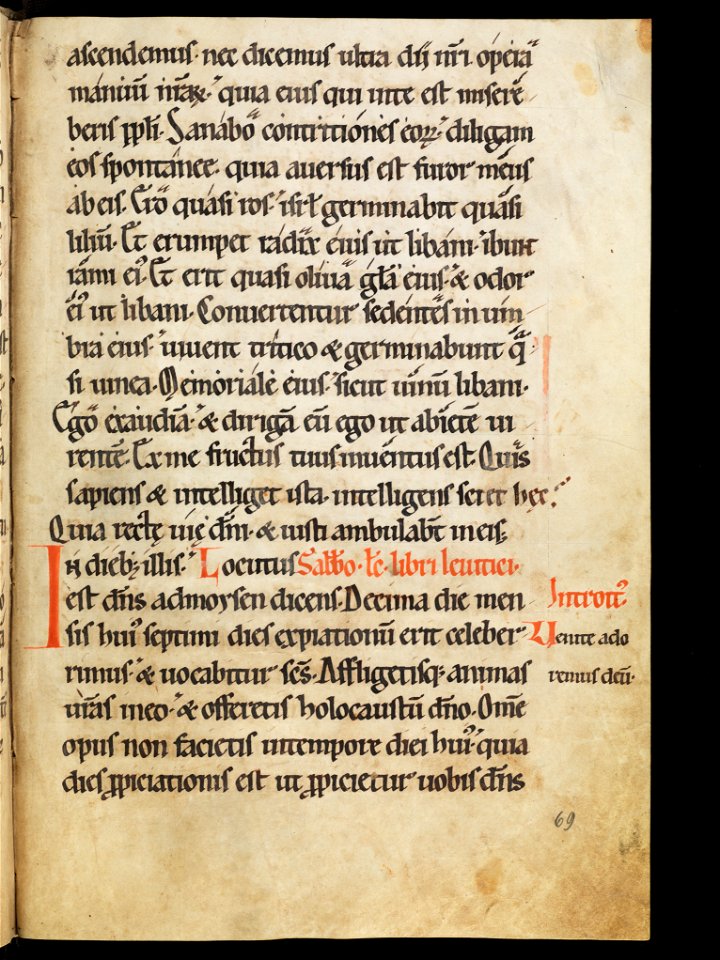 ascendemus· nec dicemus ultra dii nr̄i opera
manuū nr̄aꝝ·' quia eius qui inte est misere
beris pp̄li· Sanabo contritiones eoꝝ·' diligam
eos spontanee· quia auersus est furor meus
ab eis· Ero quasi ros·' isrł germinabit quasi
liliū· Et erumpet radix eius ut libani·' ibunt
rami ei'· Et erit quasi oliua glā eius·' & odor
ei' ut libani· Conuertentur sedentes in um
bra eius·' uiuent tritico & germinabunt q̄
si uinea· Memoriale eius·' sicut uinū libani·
Ego exaudiā·' & dirigā eū ego ut abietē ui
rentē· Ex me fructus tuus inuentus est· Quis
sapiens & intelliget ista· intelligens sciet hęc?
Quia recte uię dn̄i· & iusti ambulabt̄ in eis;
In dieb; illis·' Locutus Sabbo· łc· libri leuitici·
est dn̄s admoysen dicens· Decima die men
Introit'
sis hui' septimi dies expiationū erit celeber
Uenite ado
rimus·' & uocabitur scs̄· Affligetisq; animas
remus deū·
ur̄as in eo·' & offeretis holocaustū dn̄o· Omē
opus non facietis intempore diei hui'·' quia
dies ꝓpiciationis est ut ꝓpicietur uobis dn̄s
69